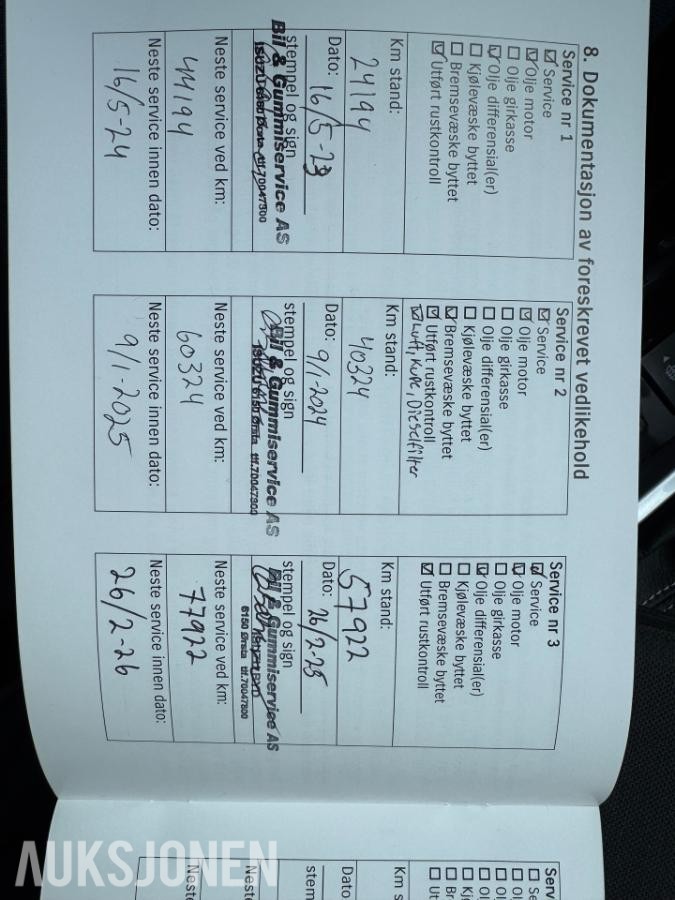 8. Dokumentasjon av foreskrevet vedlikehold
Service nr 1
☑ Service
☑ Olje motor
☐ Olje girkasse
☑ Olje differensial(er)
☐ Kjølevæske byttet
☐ Bremsevæske byttet
☑ Utført rustkontroll
Km stand:
24194
Dato: 16/5-23
stempel og sign
Bil & Gummiservice AS
ISUZU 6150 Ørsta tlf.70047800
Neste service ved km:
44194
Neste service innen dato:
16/5-24
Service nr 2
☑ Service
☑ Olje motor
☐ Olje girkasse
☐ Olje differensial(er)
☐ Kjølevæske byttet
☑ Bremsevæske byttet
☑ Utført rustkontroll
☑ Luft, Kupe, Dieselfilter
Km stand:
40324
Dato: 9/1-2024
stempel og sign
Bil & Gummiservice AS
ISUZU 6150 Ørsta tlf.70047800
Neste service ved km:
60324
Neste service innen dato:
9/1-2025
Service nr 3
☑ Service
☑ Olje motor
☐ Olje girkasse
☑ Olje differensial(er)
☐ Kjølevæske byttet
☐ Bremsevæske byttet
☑ Utført rustkontroll
Km stand:
57922
Dato: 26/2-25
stempel og sign
Bil & Gummiservice AS
6150 Ørsta tlf.70047800
Neste service ved km:
77922
Neste service innen dato:
26/2-26
Servic
☐ Se
☐ Ol
☐ Ol
☐ Ol
☐ Kj
☐ Br
☐ Ut
Km s
Dato
stem
Neste
Neste
AUKSJONEN